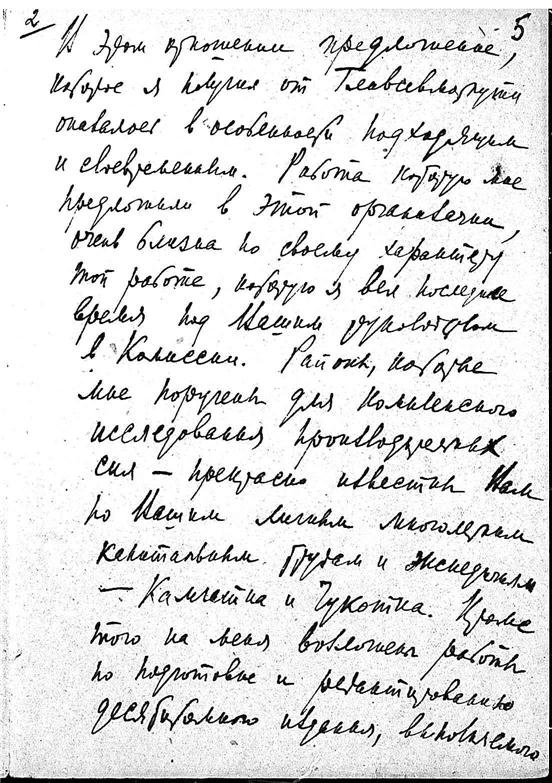 2
5
В этом отношении предложение,
которое я получил от Главсевморпути
оказалось в особенности подходящим
и своевременным. Работа которую мне
предложили в этой организации,
очень близка по своему характеру
той работе, которую я вел последнее
время под Вашим руководством
в Комиссии. Районы, которые
мне поручены для комплексного
исследования производительных
сил — прекрасно известны Вам
по Вашим личным многолетним
капитальным трудам и экспедициям
— Камчатка и Чукотка. Кроме
того на меня возложены работы
по подготовке и редактированию
десятитомного издания, выпускаемого